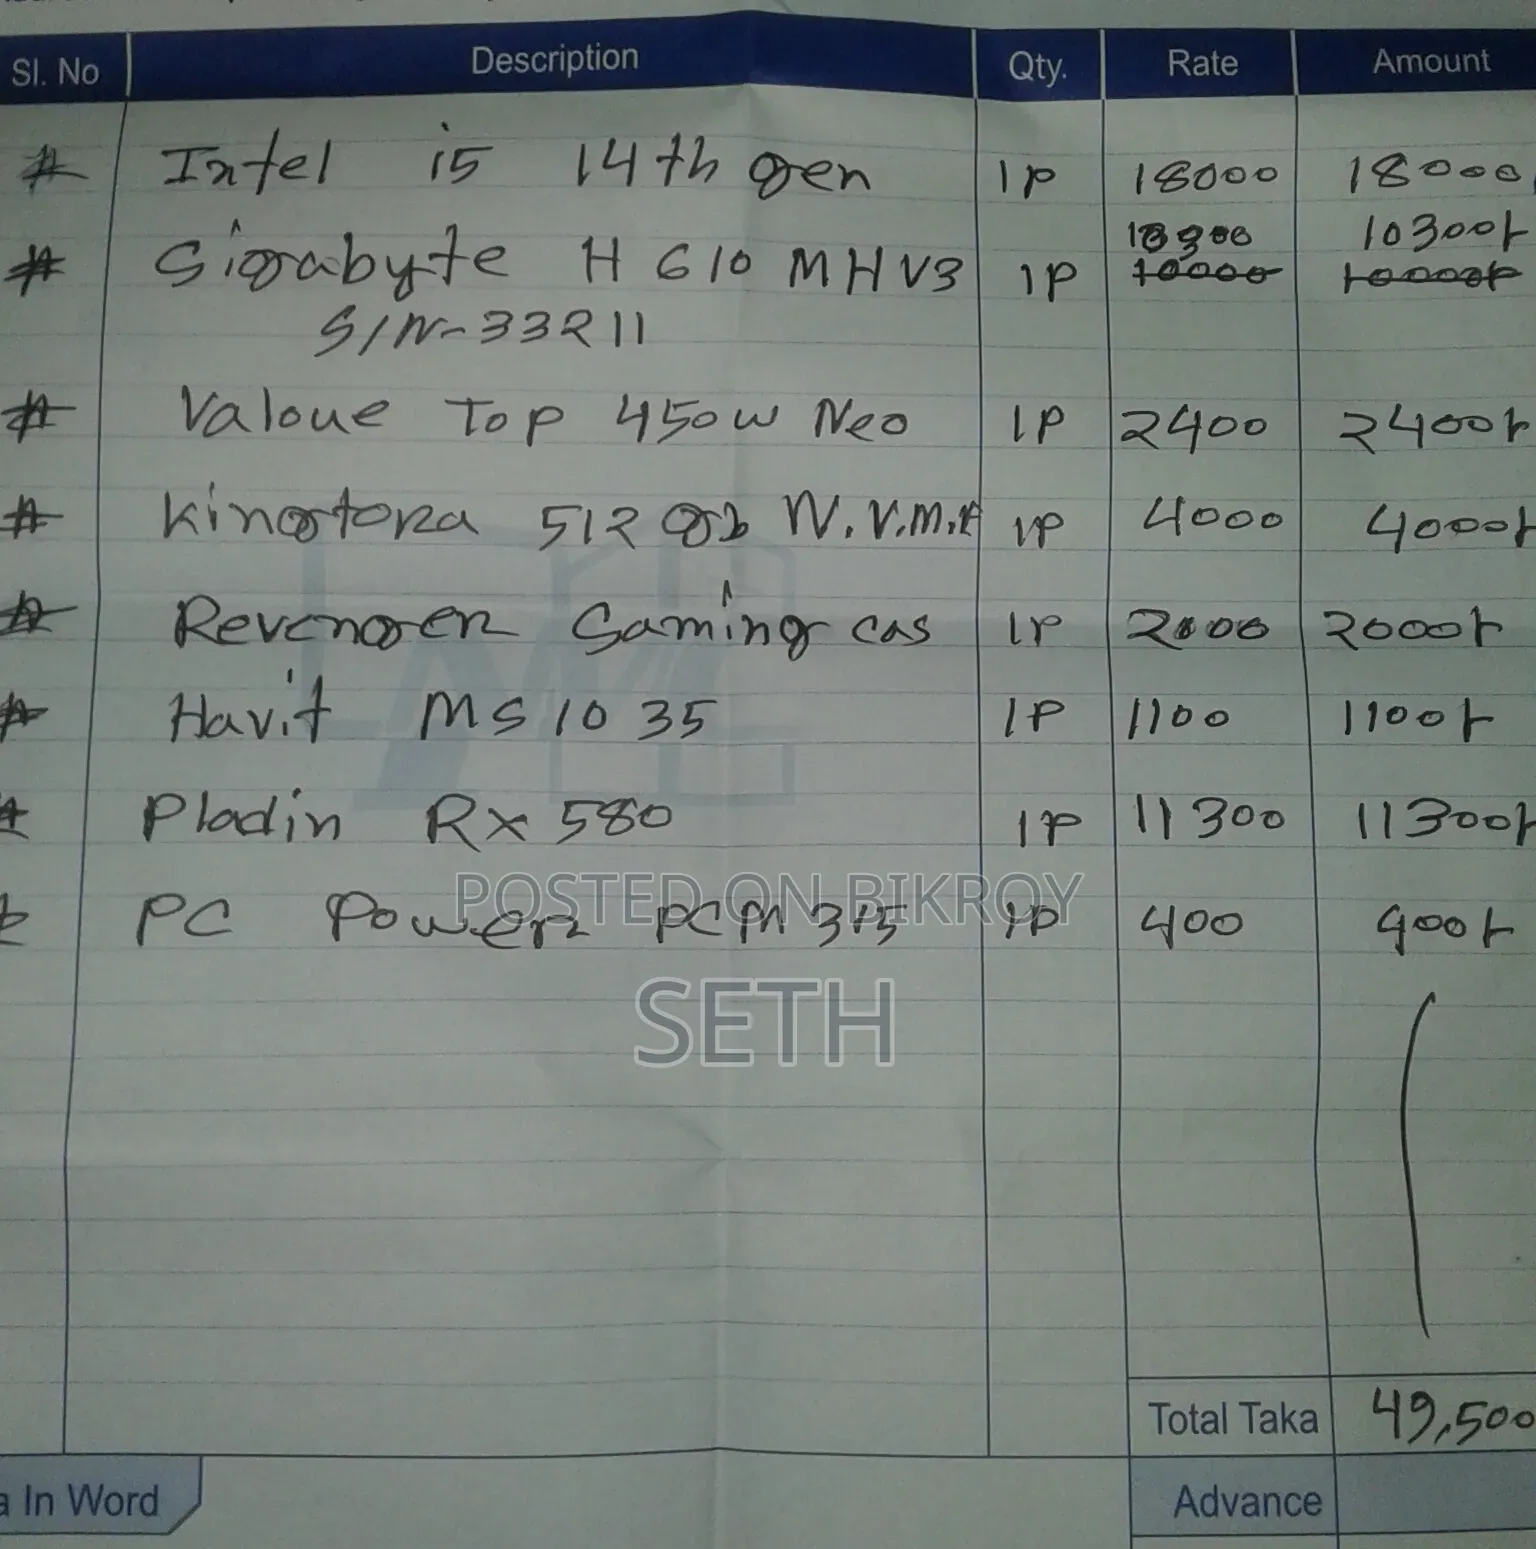 Sl. No Description Qty. Rate Amount
# Intel i5 14th gen 1P 18000 18000
10300 10300/-
# Gigabyte H 610 MHV3 1P 10000 10000/-
S/N-33211
# Valoue Top 450W Neo 1P 2400 2400/-
# Kingstona 512 gb N.V.M.E 1P 4000 4000/-
# Revenger Gaming cas 1P 2000 2000/-
# Havit MS1035 1P 1100 1100/-
# Pladin Rx 580 1P 11300 11300/-
PC Power PCM 315 1P 400 400/-
POSTED ON BIKROY
SETH
Total Taka 49,500
In Word
Advance